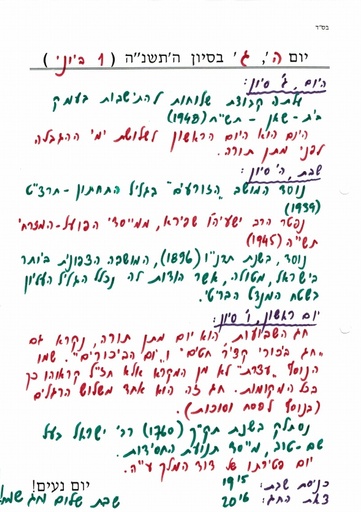 בס"ד
יום ה', ג' בסיון ה'תשנ"ה ( 1 ביוני )
היום, ג' סיון:
עלתה קבוצת שלוחות להתישבות בעמק
בית - שאן - תש"ח (1948)
היום הוא היום הראשון לשלושת ימי ההגבלה
לפני מתן תורה.
שבת, ה' סיון:
נוסד המושב "הזורעים" בגליל התחתון - תרצ"ט
(1939)
נפטר הרב ישעיהו שפירא, ממייסדי הפועל-המזרחי
תש"ה (1945)
נוסד, בשנת תרנ"ו (1896), המושבה הצפונית ביותר
בישראל, מטולה, אשר הודות לה נכלל הגליל העליון
בשטח המנדט הבריטי.
יום ראשון, ו' סיון:
חג השבועות, הוא יום מתן תורה, נקרא גם
"חג ביכורי קציר חטים" ו"יום הביכורים". שמו
הנוסף "עצרת" לא מן המקרא אלא חז"ל קראוהו כך
בכל המקומות. חג זה הוא אחד משלוש הרגלים
(בנוסף לפסח וסוכות).
נסתלק בשנת תק"ך (1760) רבי ישראל בעל
שם-טוב, מייסד תנועת החסידות.
יום פטירתו של דוד המלך ע"ה.
כניסת שבת: 19:15
צאת החג: 20:16
יום נעים!
שבת שלום וחג שמח!